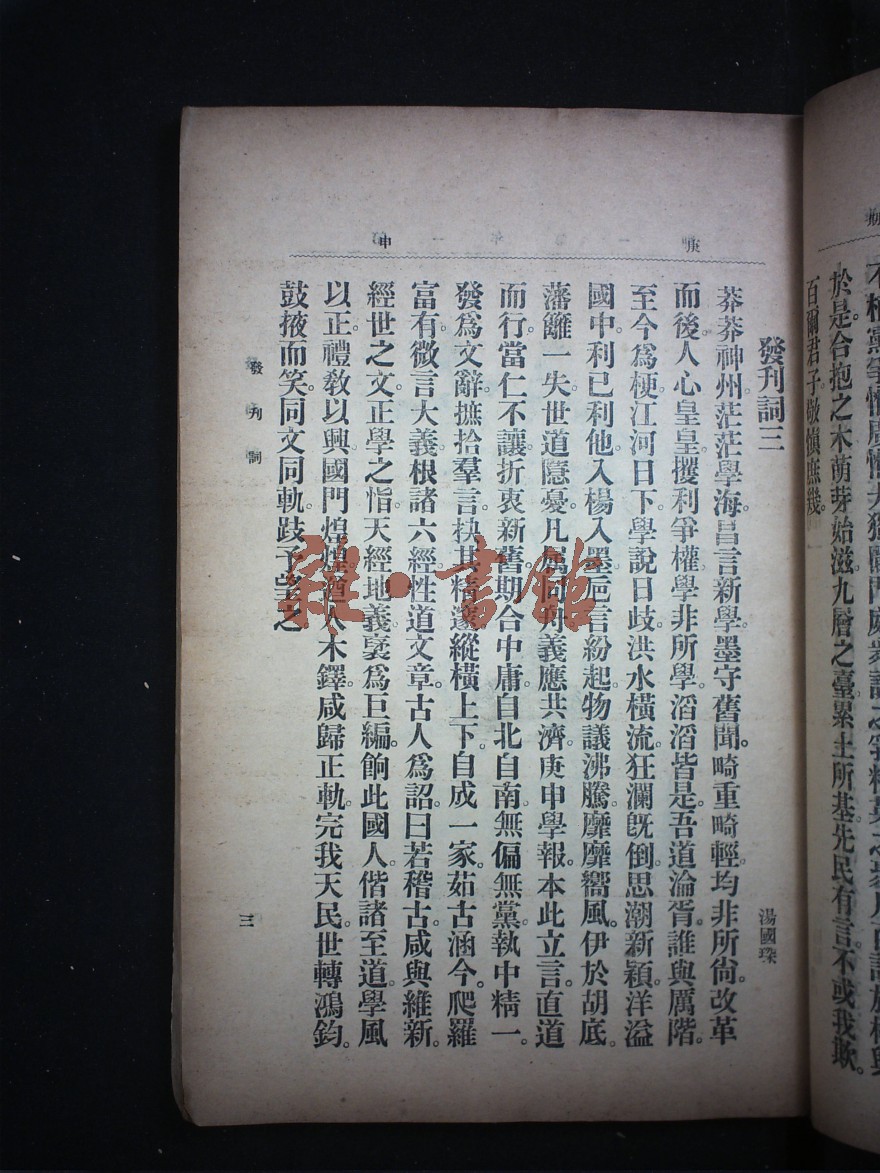 於是合抱之木萌芽始滋九層之臺累土所基先民有言不或我欺。
百爾君子敬愼庶幾。
庚申
發刊詞三
湯國琛
莽莽神州茫茫學海昌言新學墨守舊聞。畸重畸輕均非所尙。改革
而後人心皇皇攫利爭權學非所學。滔滔皆是吾道淪胥。誰與厲階。
至今爲梗江河日下學說日歧洪水橫流狂瀾旣倒。思潮新穎洋溢
國中。利已利他入楊入墨巵言紛起物議沸騰靡靡嚮風。伊於胡底。
藩籬一失世道隱憂。凡屬同舟義應共濟。庚申學報本此立言。直道
而行。當仁不讓。折衷新舊期合中庸。自北自南無偏無黨。執中精一。
發爲文辭摭拾羣言抉其精邃。縱橫上下。自成一家。茹古涵今。爬羅
富有。微言大義根諸六經性道文章。古人爲詔曰若稽古咸與維新。
經世之文正學之恉天經地義裒爲巨編。餉此國人。偕諸至道。學風
以正禮敎以興國門煌煌遒人木鐸。咸歸正軌完我天民世轉鴻鈞。
鼓掖而笑。同文同軌跂予望之。
發刊詞
三
雜·書館